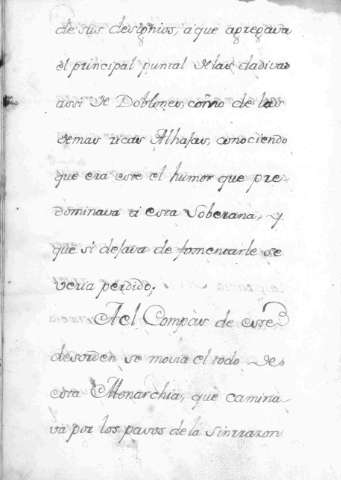 de sus designios, a que agregava
el principal puntal de las dadivas
assi de Doblones, como de las
demas ricas Alhajas, conociendo
que era este el humor que pre-
dominava a esta Soberana, y
que si dejava de fomentarle se
veria perdido.
Al Compàs de este
desorden se movia el todo de
esta Monarchia, que camina
va por los pasos de la Sinrazon